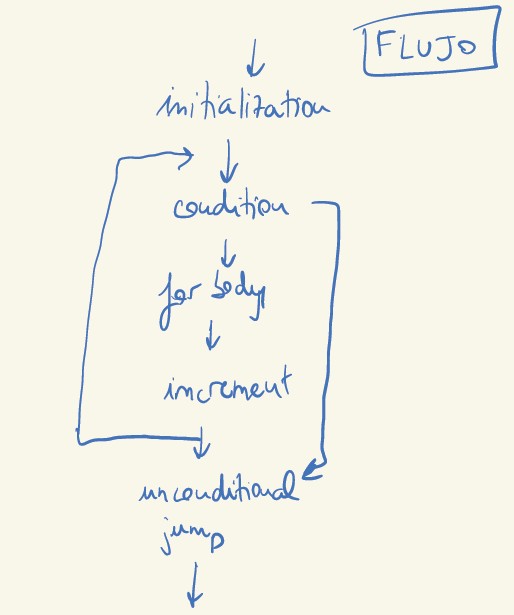 FLUJO
initialization
condition
for body
increment
unconditional
jump